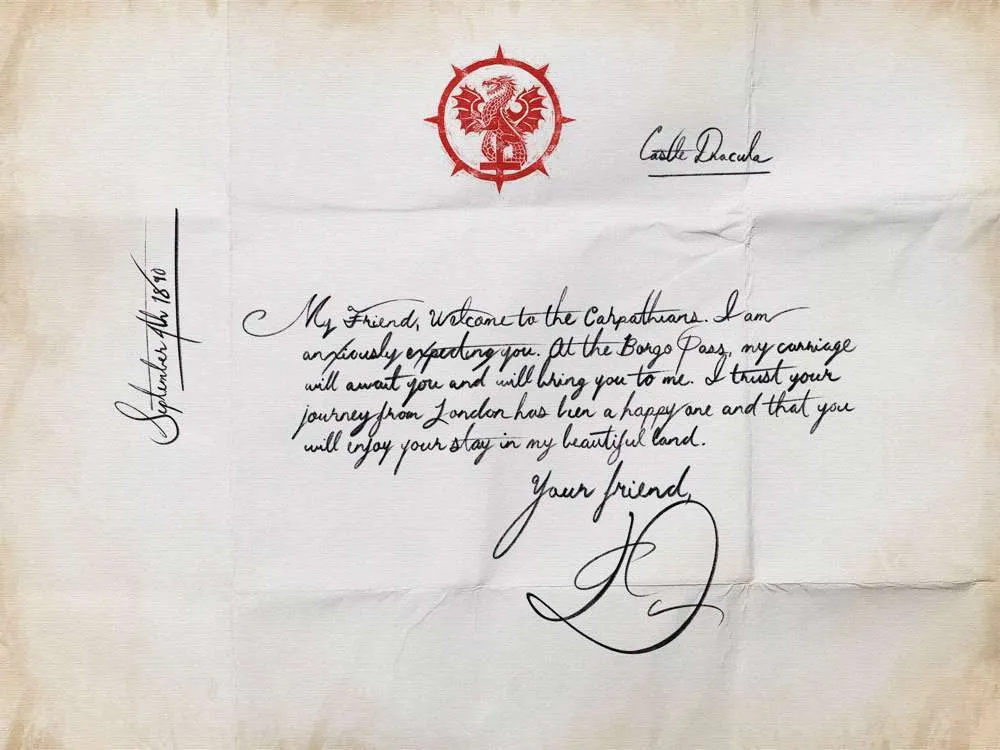 Castle Dracula
September 9th 1890
My Friend, Welcome to the Carpathians. I am
anxiously expecting you. At the Borgo Pass, my carriage
will await you and will bring you to me. I trust your
journey from London has been a happy one and that you
will enjoy your stay in my beautiful land.
Your friend,
D